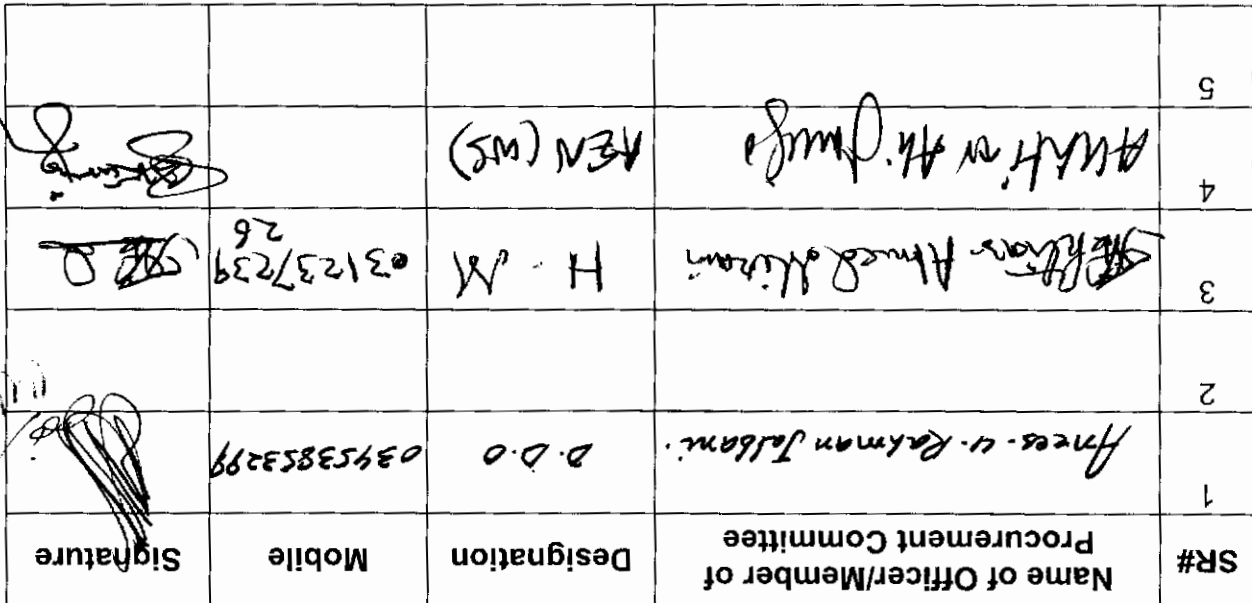 SR# Name of Officer/Member of Procurement Committee Designation Mobile Signature
1 Anees-u-Rahman Jalbani. D.D.O 03453853299
2
3 Ahmed Nizami H.M 03123723926
4 Ali Junejo AEN (WS)
5